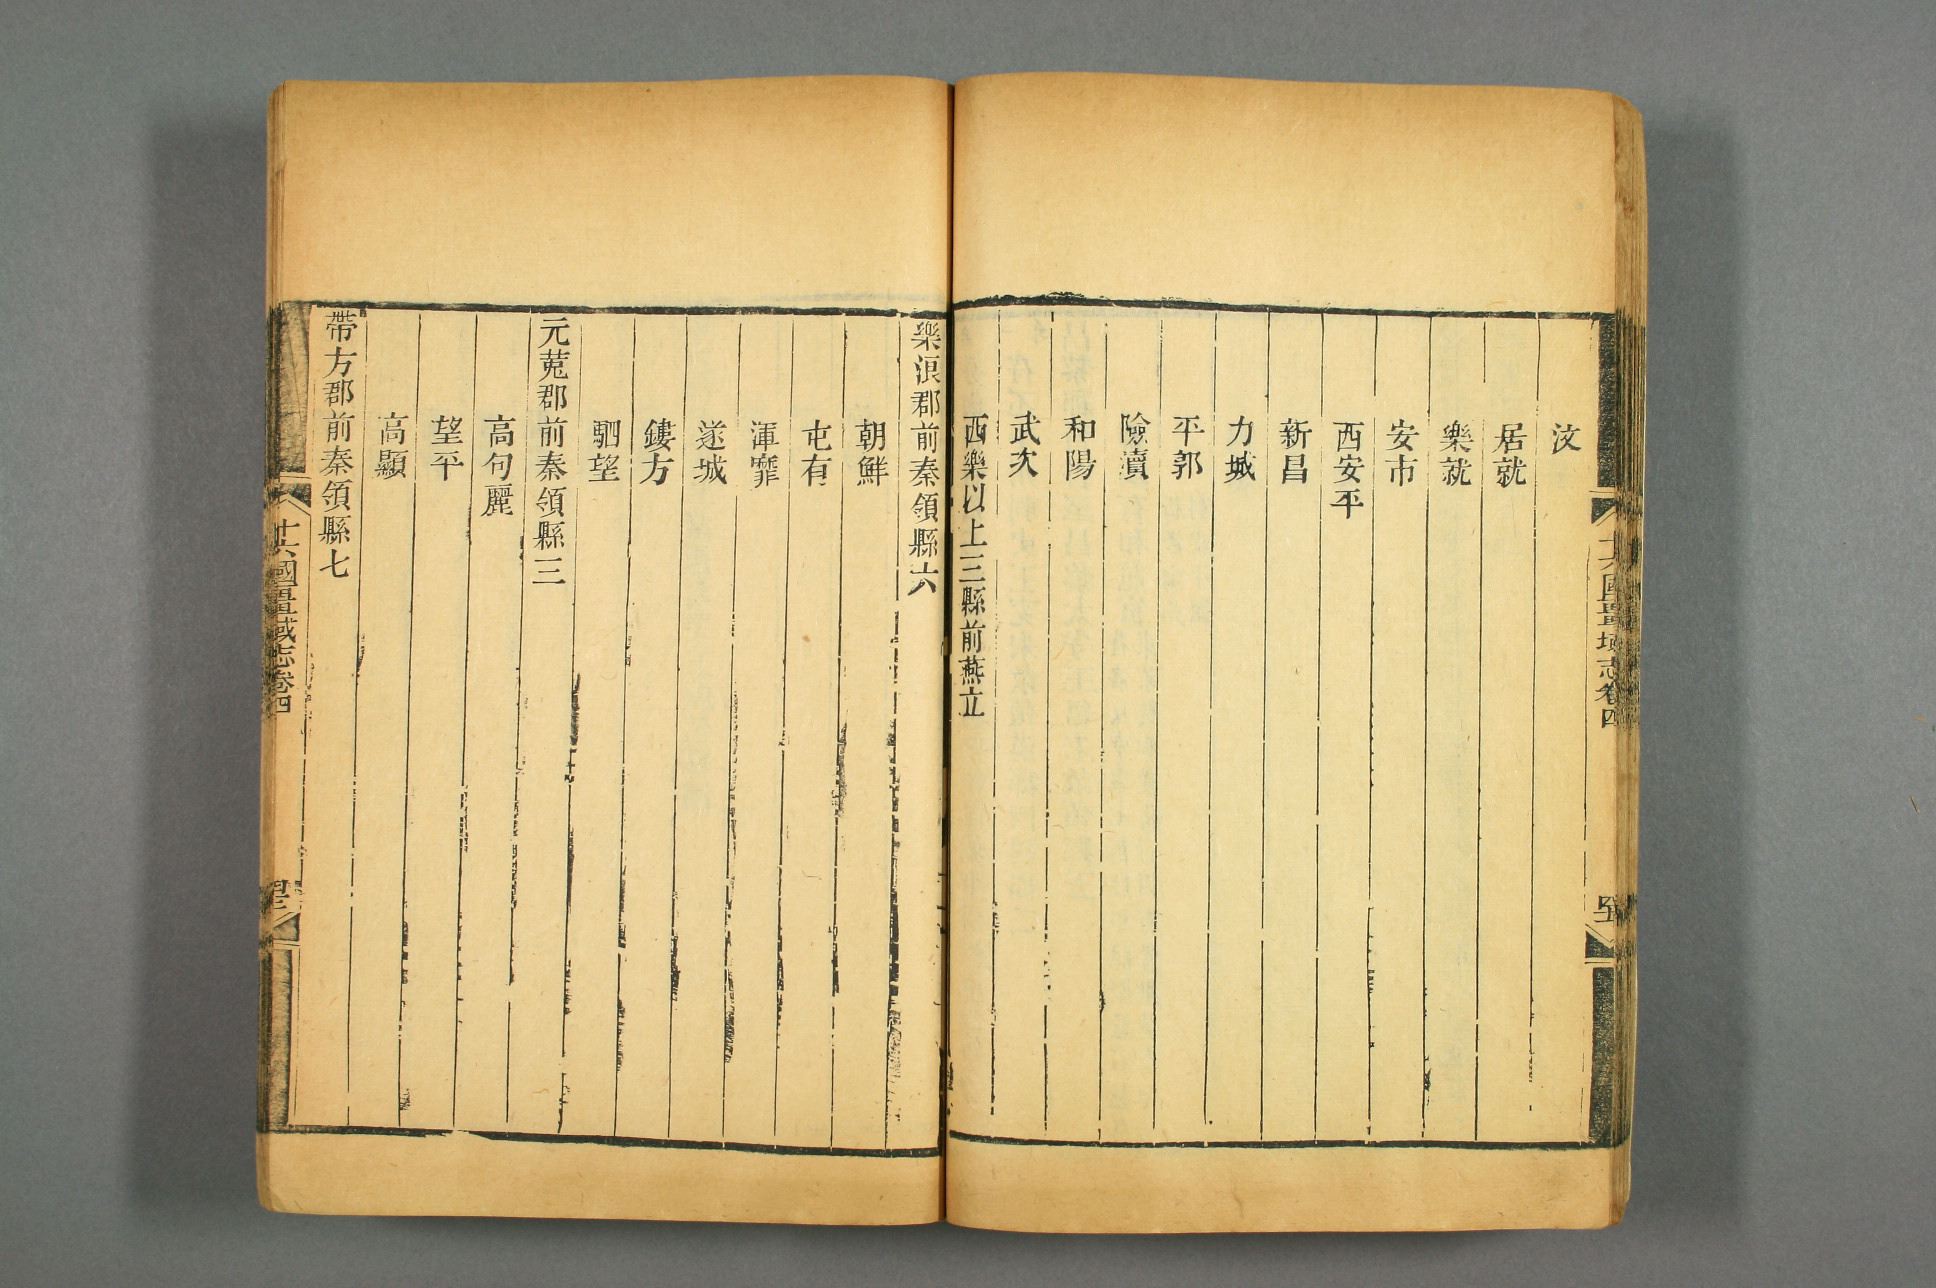 汶
居就
樂就
安市
西安平
新昌
力城
平郭
險瀆
和陽
武次
西樂以上三縣前燕立
樂浪郡前秦領縣六
朝鮮
屯有
渾彌
遂城
鏤方
駟望
元菟郡前秦領縣三
高句麗
望平
高顯
帶方郡前秦領縣七
十六國疆域志卷四